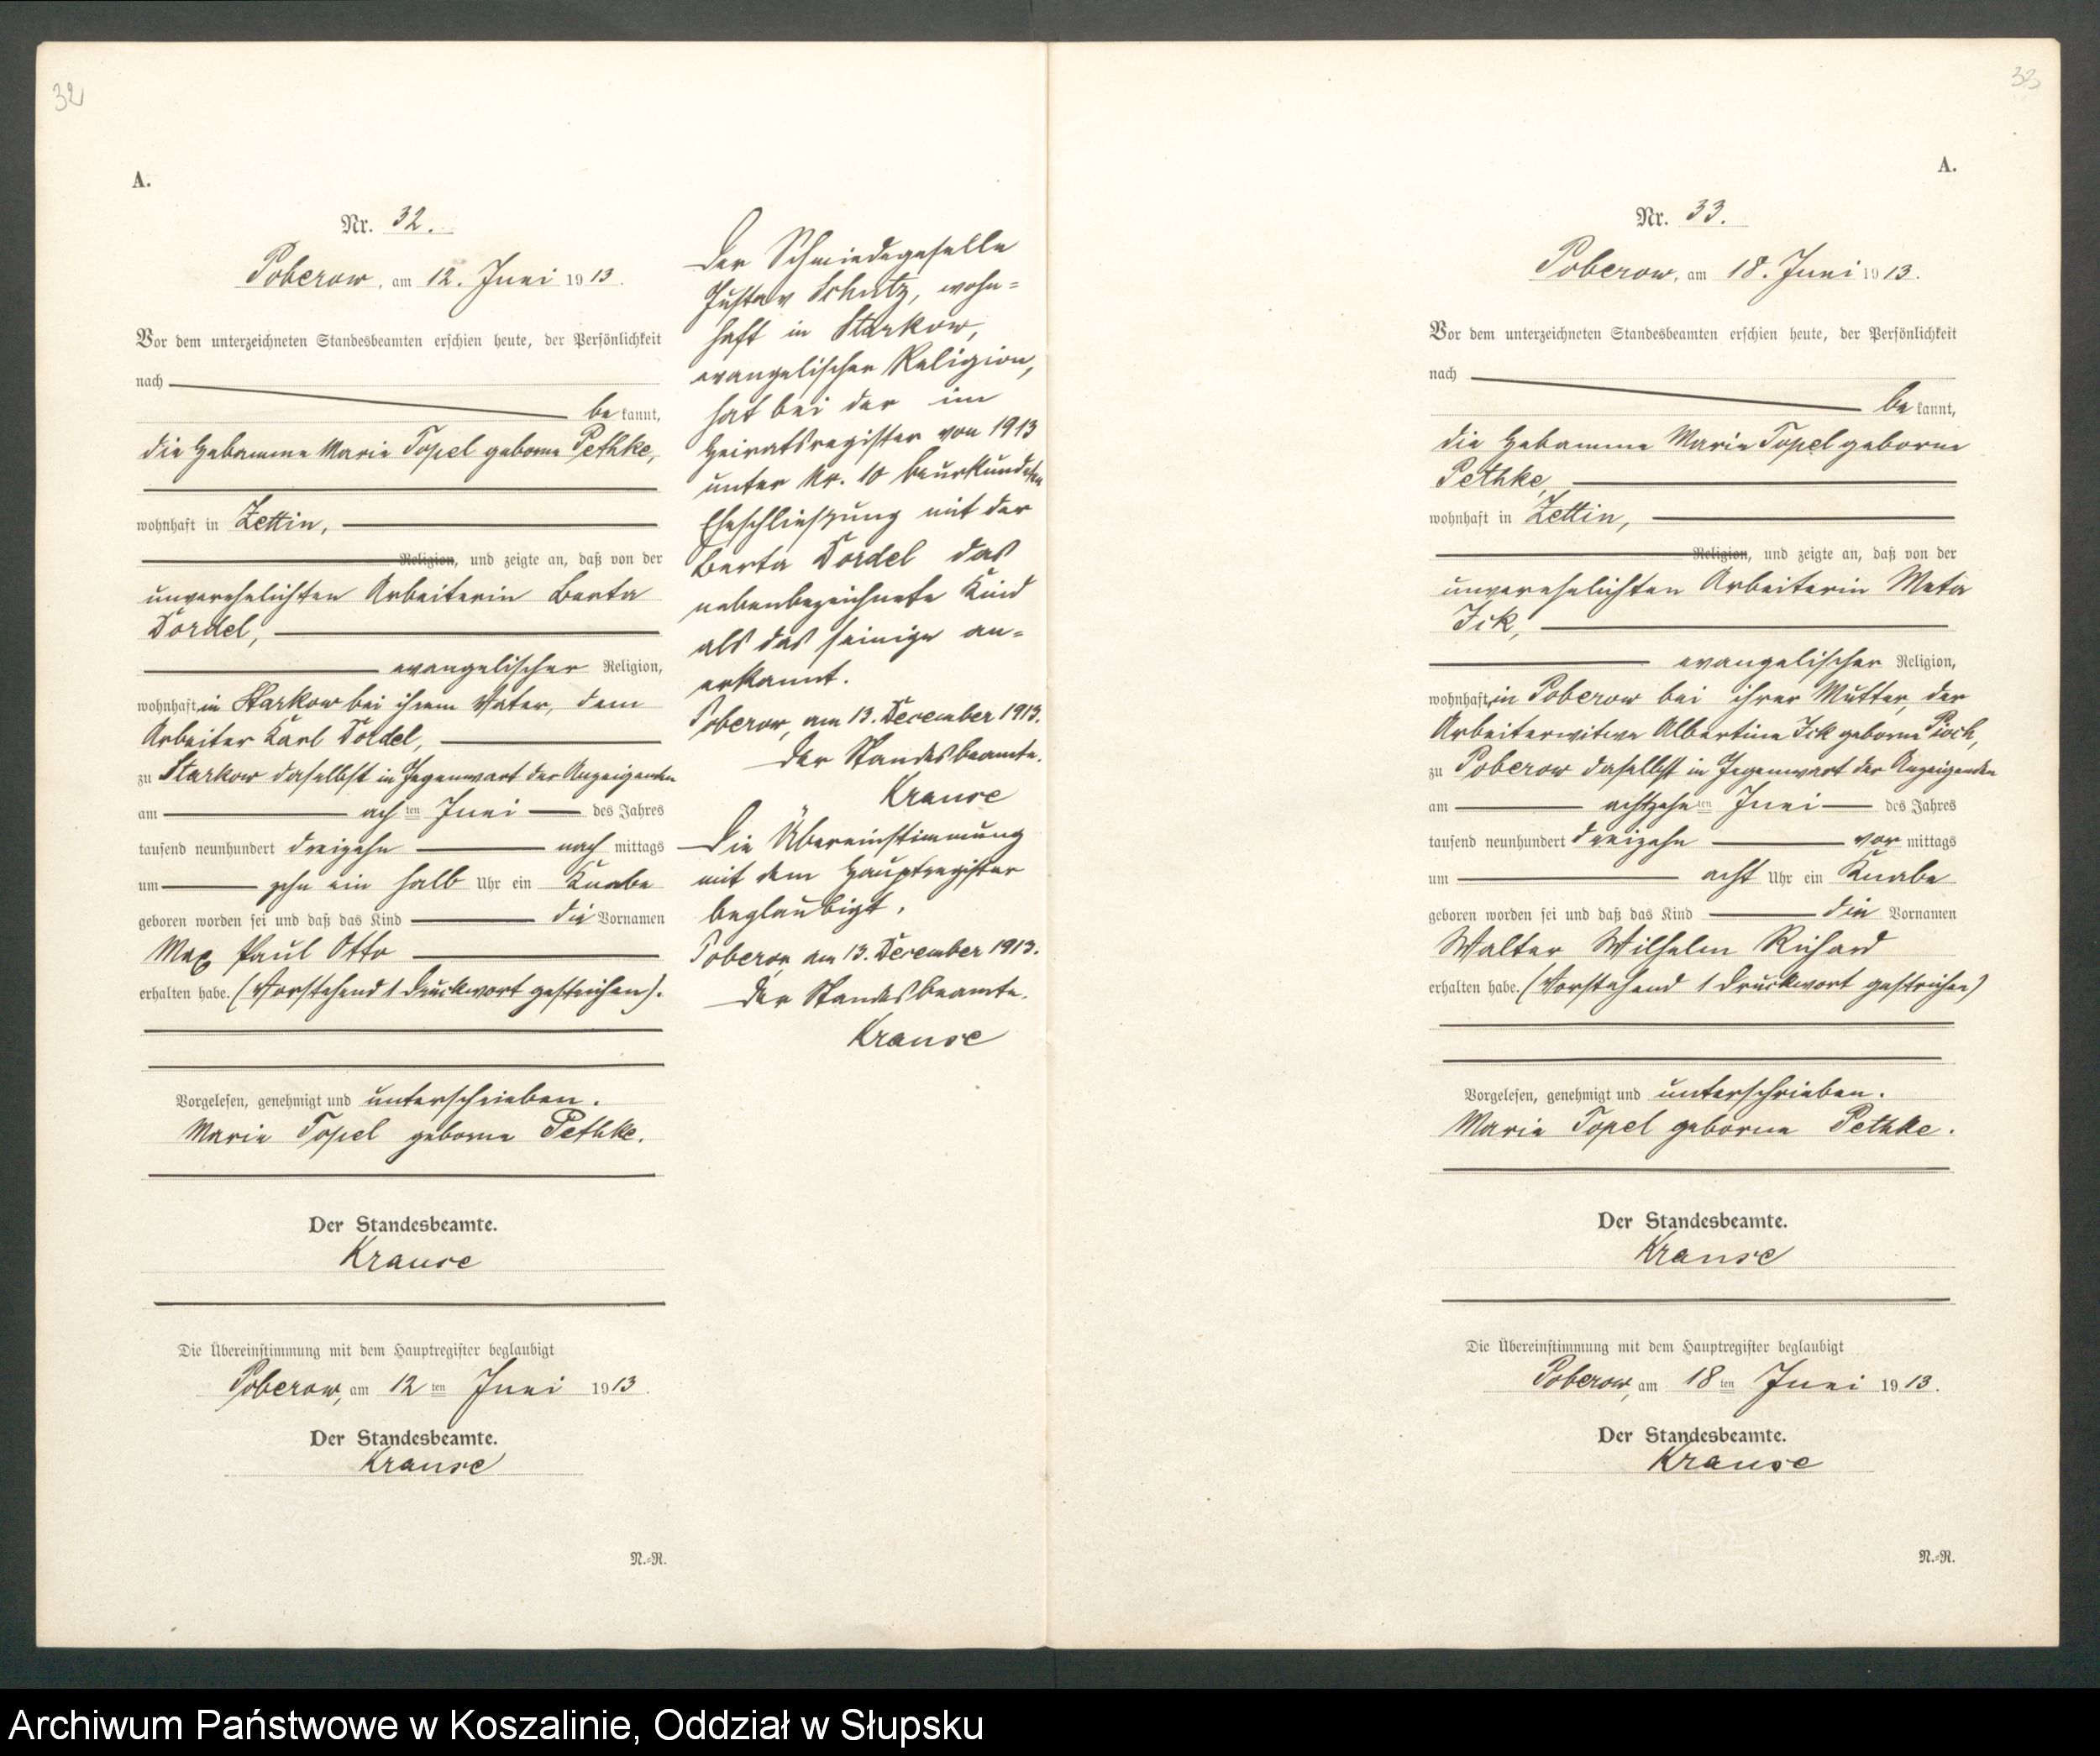 32
A.
Nr. 32.
Poberow, am 12. Juni 1913.
Vor dem unterzeichneten Standesbeamten erschien heute, der Persönlichkeit
nach
bekannt,
die Hebamme Marie Topel geborne Pethke,
wohnhaft in Zettin,
Religion, und zeigte an, daß von der
unverehelichten Arbeiterin Berta
Dordel,
evangelischer Religion,
wohnhaft in Starkow bei ihrem Vater, dem
Arbeiter Karl Dordel,
zu Starkow daselbst in Gegenwart der Anzeigenden
am achten Juni des Jahres
tausend neunhundert dreizehn nachmittags
um zehn ein halb Uhr ein Knabe
geboren worden sei und daß das Kind die Vornamen
Max Paul Otto
erhalten habe. (Vorstehend 1 Druckwort gestrichen).
Vorgelesen, genehmigt und unterschrieben.
Marie Topel geborne Pethke.
Der Standesbeamte.
Krause
Die Übereinstimmung mit dem Hauptregister beglaubigt
Poberow, am 12ten Juni 1913.
Der Standesbeamte.
Krause
N.-R.
Der Schmiedegeselle
Gustav Schulz, wohn=
haft in Starkow,
evangelischer Religion,
hat bei der im
Heiratsregister von 1913
unter Nr. 10 beurkundeten
Eheschließung mit der
Berta Dordel das
nebenbezeichnete Kind
als das seinige an=
erkannt.
Poberow, am 13. December 1913.
Der Standesbeamte.
Krause
Die Übereinstimmung
mit dem Hauptregister
beglaubigt.
Poberow am 13. December 1913.
Der Standesbeamte.
Krause
33
A.
Nr. 33.
Poberow, am 18. Juni 1913.
Vor dem unterzeichneten Standesbeamten erschien heute, der Persönlichkeit
nach
bekannt,
die Hebamme Marie Topel geborne
Pethke,
wohnhaft in Zettin,
Religion, und zeigte an, daß von der
unverehelichten Arbeiterin Meta
Ick,
evangelischer Religion,
wohnhaft in Poberow bei ihrer Mutter, der
Arbeiterwitwe Albertine Ick geborne Pioch,
zu Poberow daselbst in Gegenwart der Anzeigenden
am achtzehnten Juni des Jahres
tausend neunhundert dreizehn vormittags
um acht Uhr ein Knabe
geboren worden sei und daß das Kind die Vornamen
Walter Wilhelm Richard
erhalten habe. (Vorstehend 1 Druckwort gestrichen)
Vorgelesen, genehmigt und unterschrieben.
Marie Topel geborne Pethke.
Der Standesbeamte.
Krause
Die Übereinstimmung mit dem Hauptregister beglaubigt
Poberow, am 18ten Juni 1913.
Der Standesbeamte.
Krause
N.-R.
Archiwum Państwowe w Koszalinie, Oddział w Słupsku